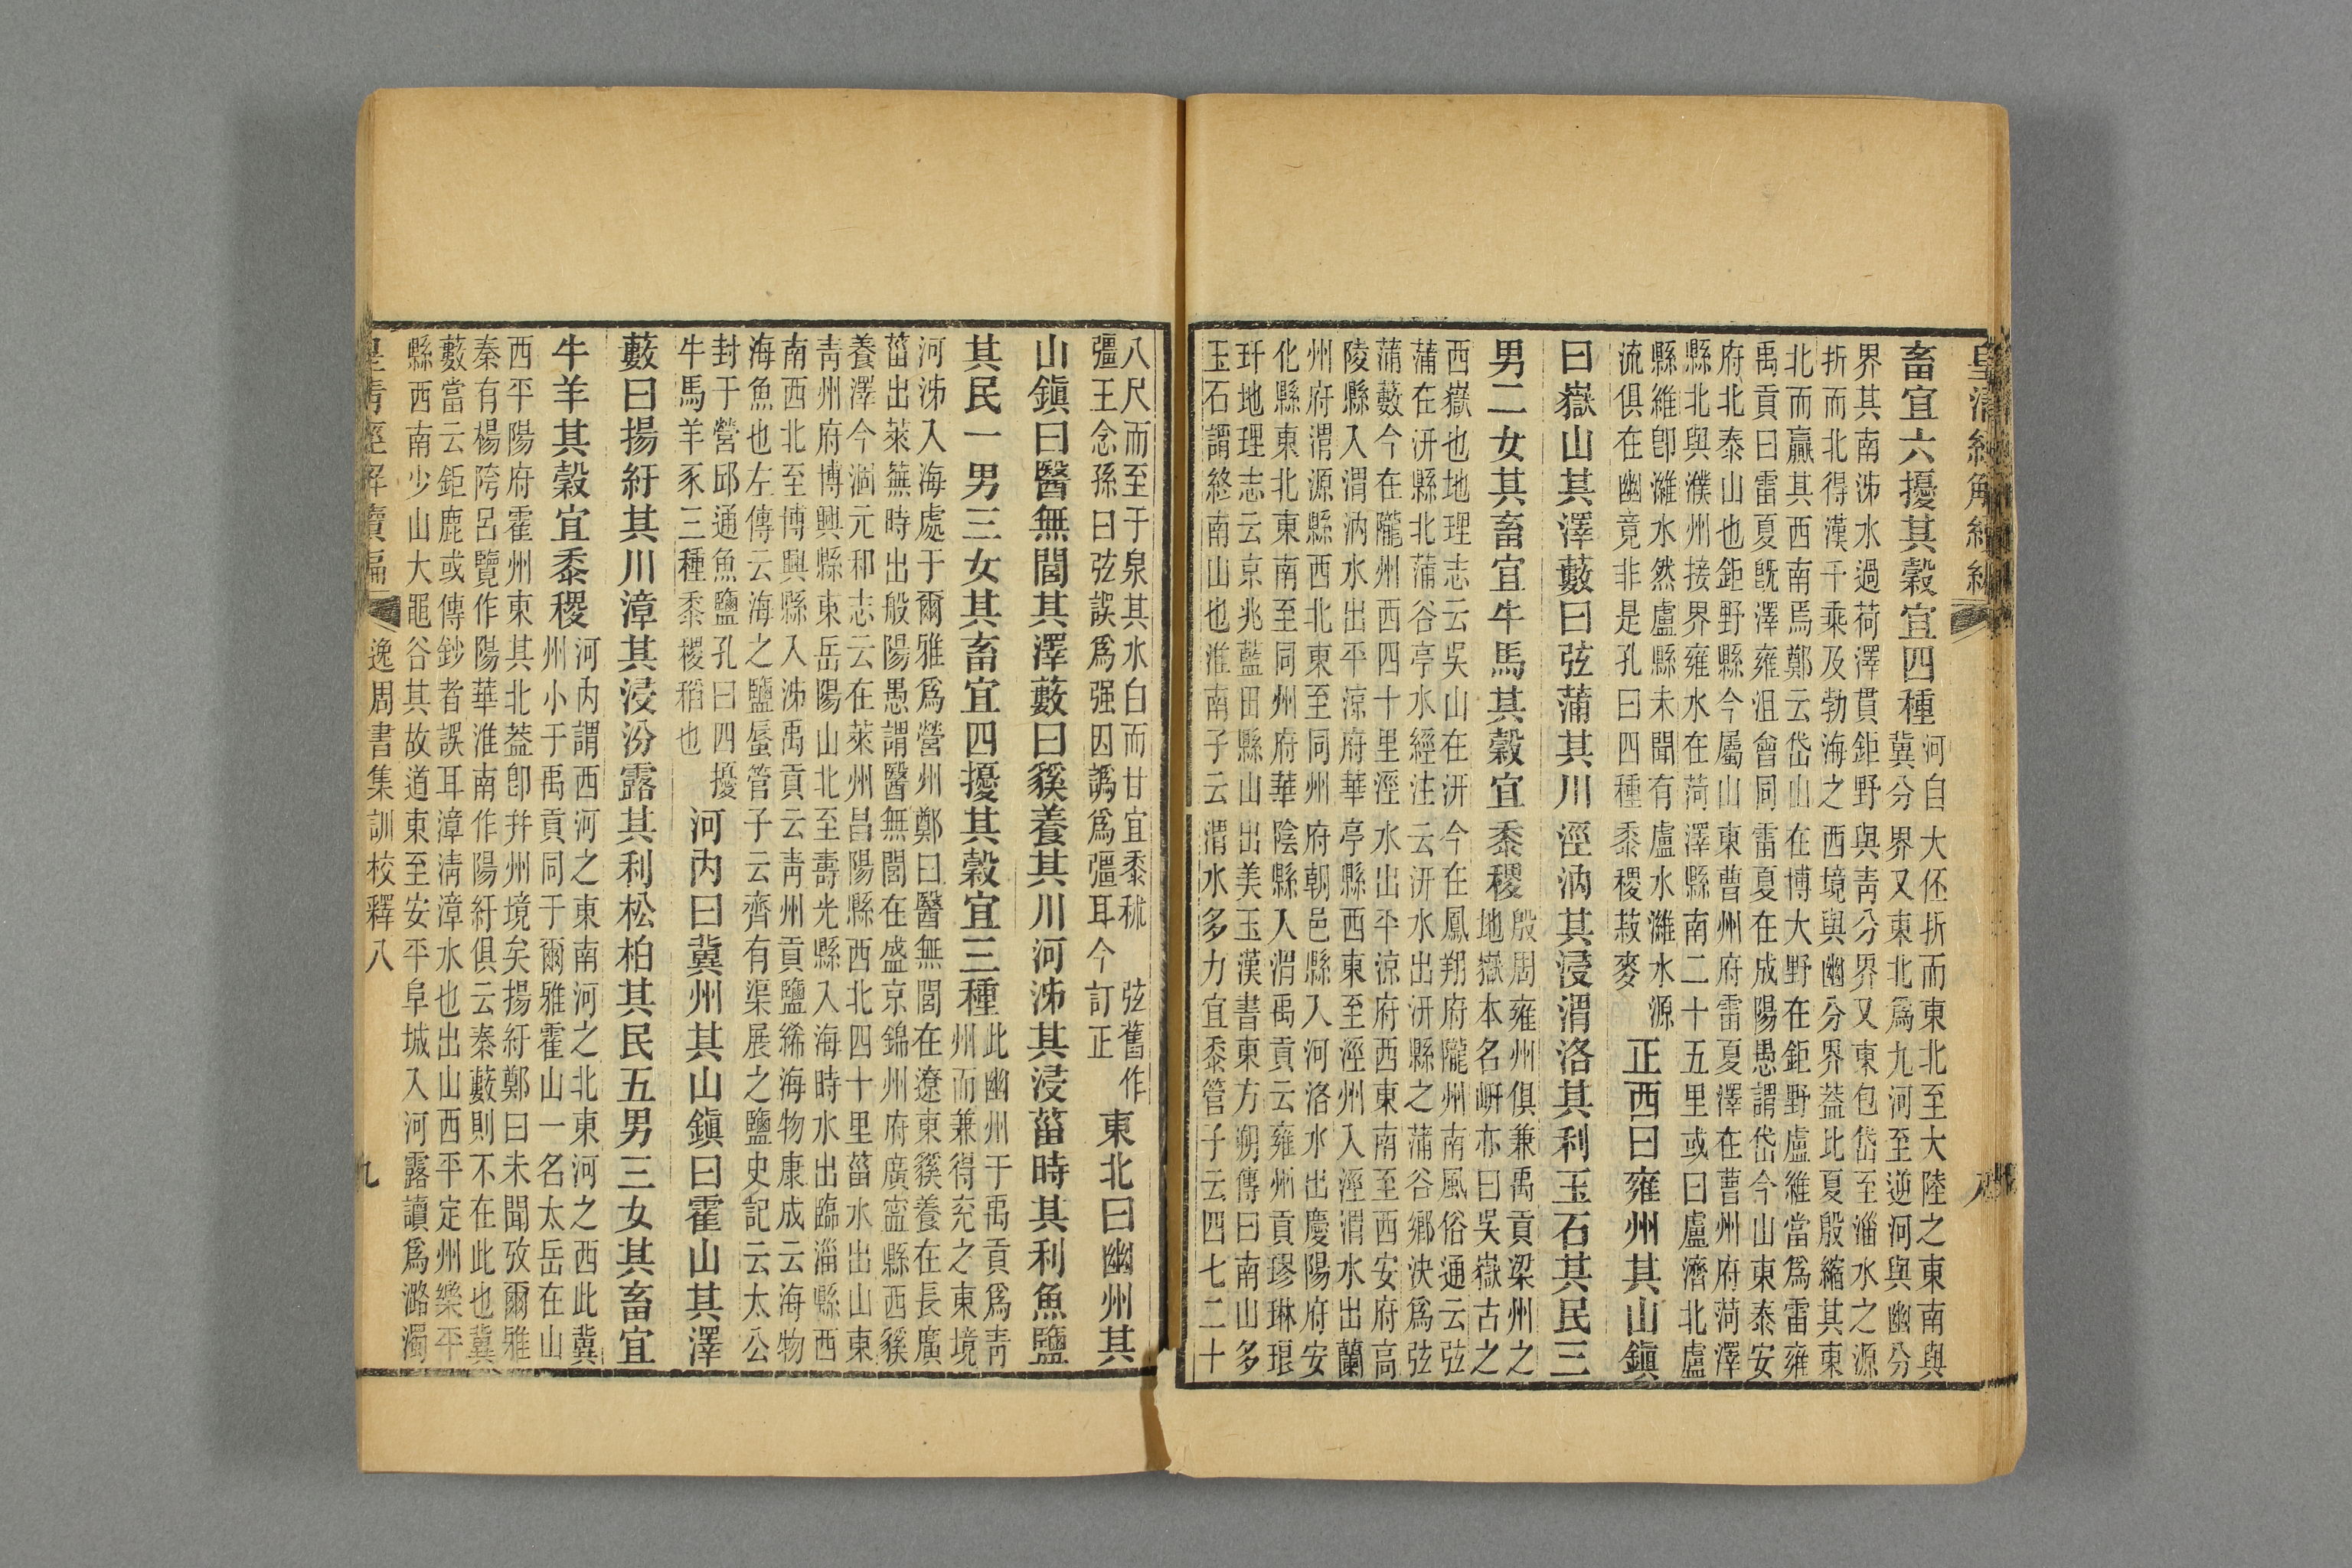 皇清經解續編　八
畜宜六擾其穀宜四種
河自大伾折而東北至大陸之東南與
冀分界又東北爲九河至逆河與幽分
界其南泲水過荷澤貫鉅野與靑分界又東包岱至淄水之源
折而北得漢千乘及勃海之西境與幽分界蓋比夏殷縮其東
北而贏其西南焉鄭云岱山在博大野在鉅野盧維當爲雷雍
禹貢曰雷夏旣澤雍沮會同雷夏在成陽愚謂岱今山東泰安
府北泰山也鉅野縣今屬山東曹州府雷夏澤在曹州府菏澤
縣北與濮州接界雍水在菏澤縣南二十五里或曰盧濟北盧
縣維卽濰水然盧縣未聞有盧水濰水源
流俱在幽竟非是孔曰四種黍稷菽麥
正西曰雍州其山鎭
曰嶽山其澤藪曰弦蒲其川涇汭其浸渭洛其利玉石其民三
男二女其畜宜牛馬其穀宜黍稷
殷周雍州俱兼禹貢梁州之
地嶽本名岍亦曰吳嶽古之
西嶽也地理志云吳山在汧今在鳳翔府隴州南風俗通云弦
蒲在汧縣北蒲谷亭水經注云汧水出汧縣之蒲谷鄉決爲弦
蒲藪今在隴州西四十里涇水出平涼府西東南至西安府高
陵縣入渭汭水出平涼府華亭縣西東至涇州入涇渭水出蘭
州府渭源縣西北東至同州府朝邑縣入河洛水出慶陽府安
化縣東北東南至同州府華陰縣入渭禹貢云雍州貢璆琳琅
玕地理志云京兆藍田縣山出美玉漢書東方朔傳曰南山多
玉石謂終南山也淮南子云渭水多力宜黍管子云四七二十
八尺而至于泉其水白而甘宜黍秫　弦舊作
彊王念孫曰弦誤爲强因譌爲彊耳今訂正
東北曰幽州其
山鎭曰醫無閭其澤藪曰豯養其川河泲其浸菑時其利魚鹽
其民一男三女其畜宜四擾其穀宜三種
此幽州于禹貢爲靑
州而兼得兖之東境
河泲入海處于爾雅爲營州鄭曰醫無閭在遼東豯養在長廣
菑出萊蕪時出般陽愚謂醫無閭在盛京錦州府廣寧縣西豯
養澤今涸元和志云在萊州昌陽縣西北四十里菑水出山東
靑州府博興縣東岳陽山北至壽光縣入海時水出臨淄縣西
南西北至博興縣入泲禹貢云靑州貢鹽絺海物康成云海物
海魚也左傳云海之鹽蜃管子云齊有渠展之鹽史記云太公
封于營邱通魚鹽孔曰四擾
牛馬羊豕三種黍稷稻也
河內曰冀州其山鎭曰霍山其澤
藪曰揚紆其川漳其浸汾露其利松柏其民五男三女其畜宜
牛羊其穀宜黍稷
河內謂西河之東南河之北東河之西此冀
州小于禹貢同于爾雅霍山一名太岳在山
西平陽府霍州東其北葢卽幷州境矣揚紆鄭曰未聞攷爾雅
秦有楊陓呂覽作陽華淮南作陽紆俱云秦藪則不在此也冀
藪當云鉅鹿或傳鈔者誤耳漳淸漳水也出山西平定州樂平
縣西南少山大黽谷其故道東至安平阜城入河露讀爲潞濁
皇清經解續編　逸周書集訓校釋八　九